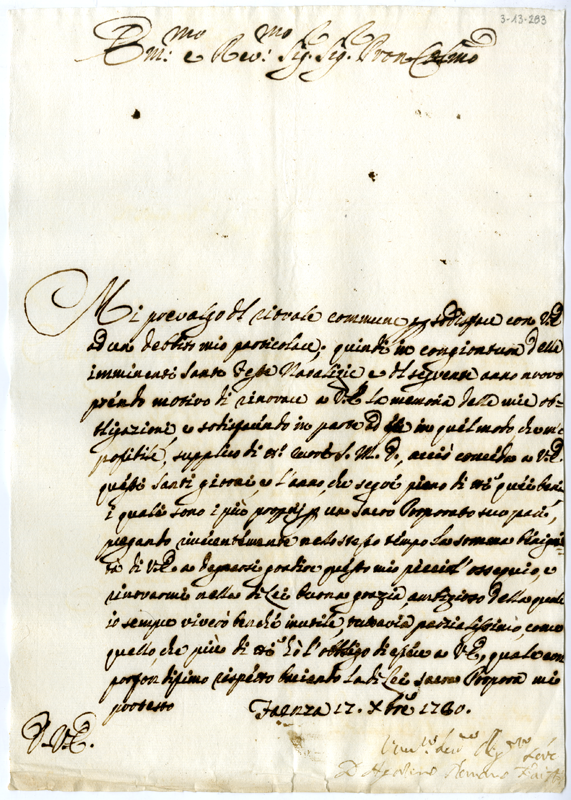 3-13-283
Em:mo e Rev:mo Sig. Sig. Pron Colmo
Mi prevalgo del rituale commune, e sodisfare con V.E.
ad un debito mio particolare; quindi in congiontura delle
imminenti Sante Feste Natalizie e del seguente anno nuovo
prendo motivo di rinovare a V.E. la memoria delle mie ob-
bligazioni, e sodisfacendo in parte ad in quel modo che m'è
possibile, supplico di S. M. D., acciò conceda a V.E.
questi santi giorni, e l'anno, che segue pieno di quei beni
i quali sono i più proprj un Sacro Porporato suo pari,
pregando nello stesso tempo la somma benigni-
tà di V.E. a degnarsi gradire questo mio piccol'ossequio, e
rinovarmi nella di Lei buona grazia, della quale
io sempre viverò benchè inutile, tuttavia parzialissimo, come
quello, che più di hà l'obbligo di esser a V.E., quale con
profondissimo rispetto baciando la di Lei Sacra Porpora mi
protesto
Faenza 17. Xbre 1760.
D. V.E.